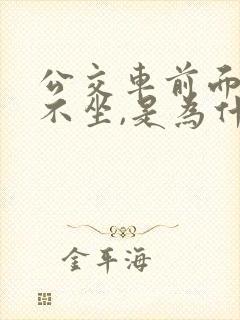 公交車前面
不坐,是為什
金平海